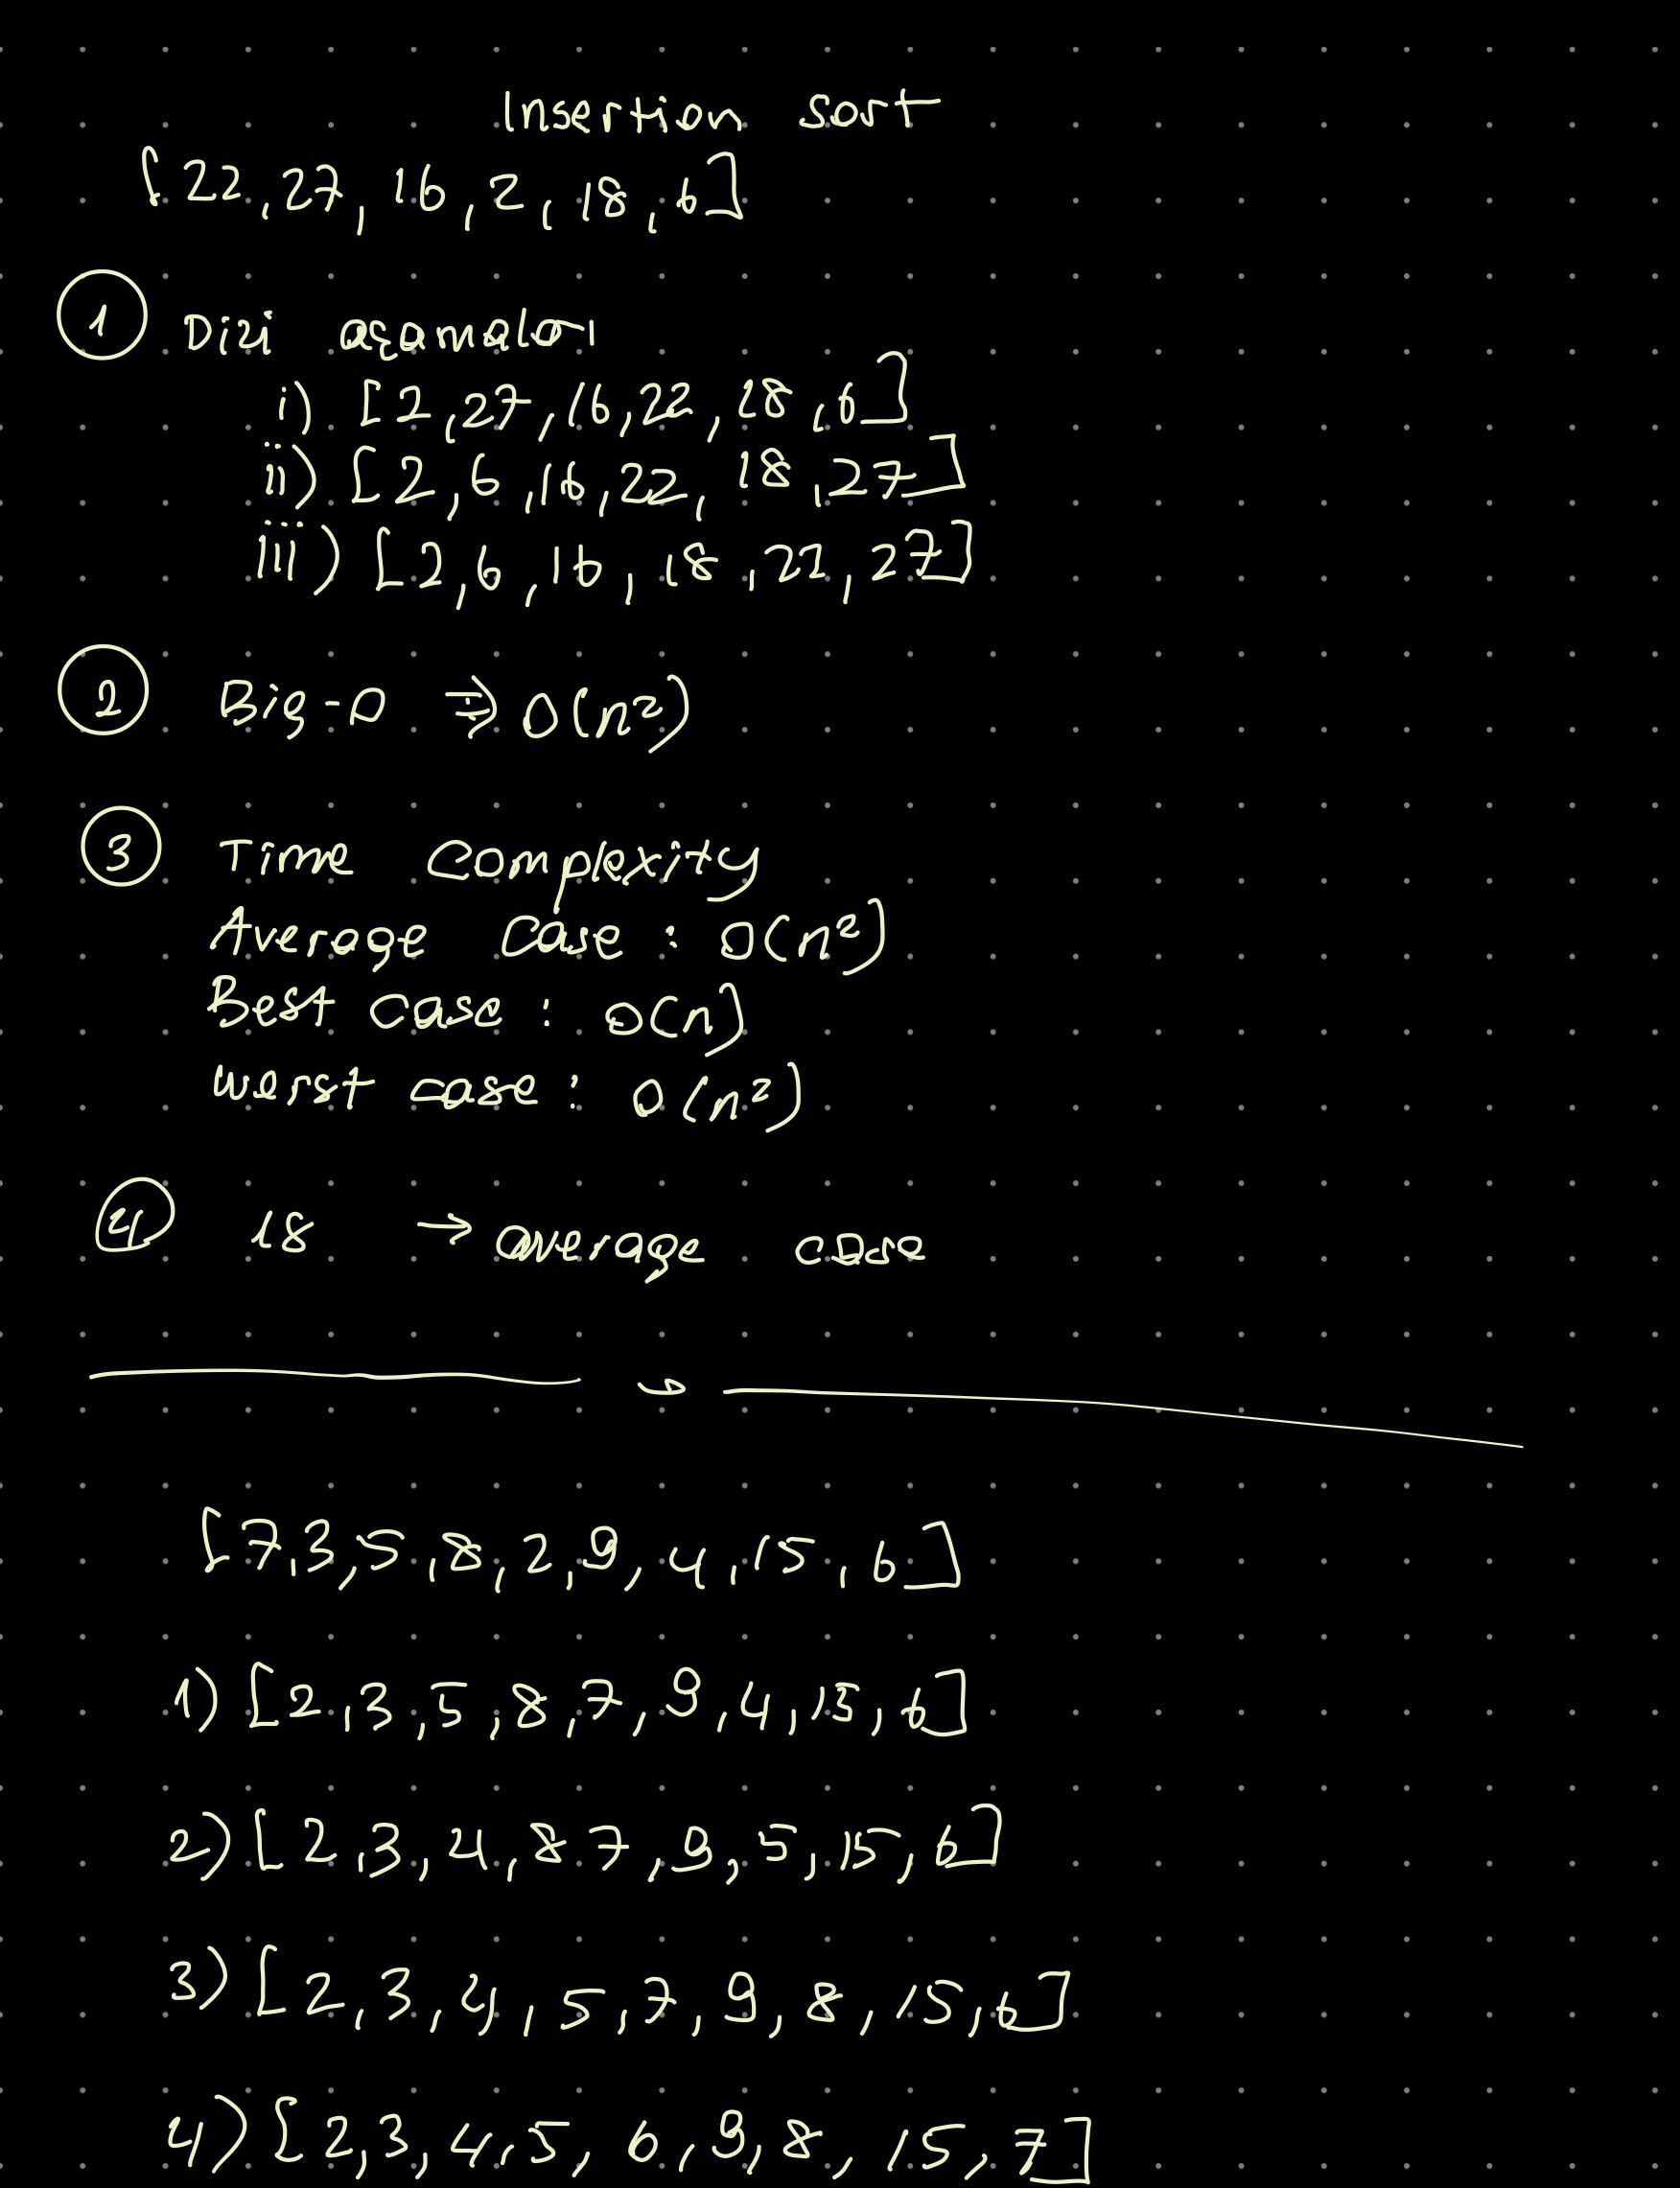 Insertion sort
[22,27,16,2,18,6]
1 Dizi aşamaları
i) [2,27,16,22,18,6]
ii) [2,6,16,22,18,27]
iii) [2,6,16,18,22,27]
2 Big-O ⇒ O(n²)
3 Time Complexity
Average Case : O(n²)
Best Case : O(n)
Worst case : O(n²)
4 18 → average case
[7,3,5,8,2,9,4,15,6]
1) [2,3,5,8,7,9,4,15,6]
2) [2,3,4,8 7,9,5,15,6]
3) [2,3,4,5,7,9,8,15,6]
4) [2,3,4,5,6,9,8,15,7]